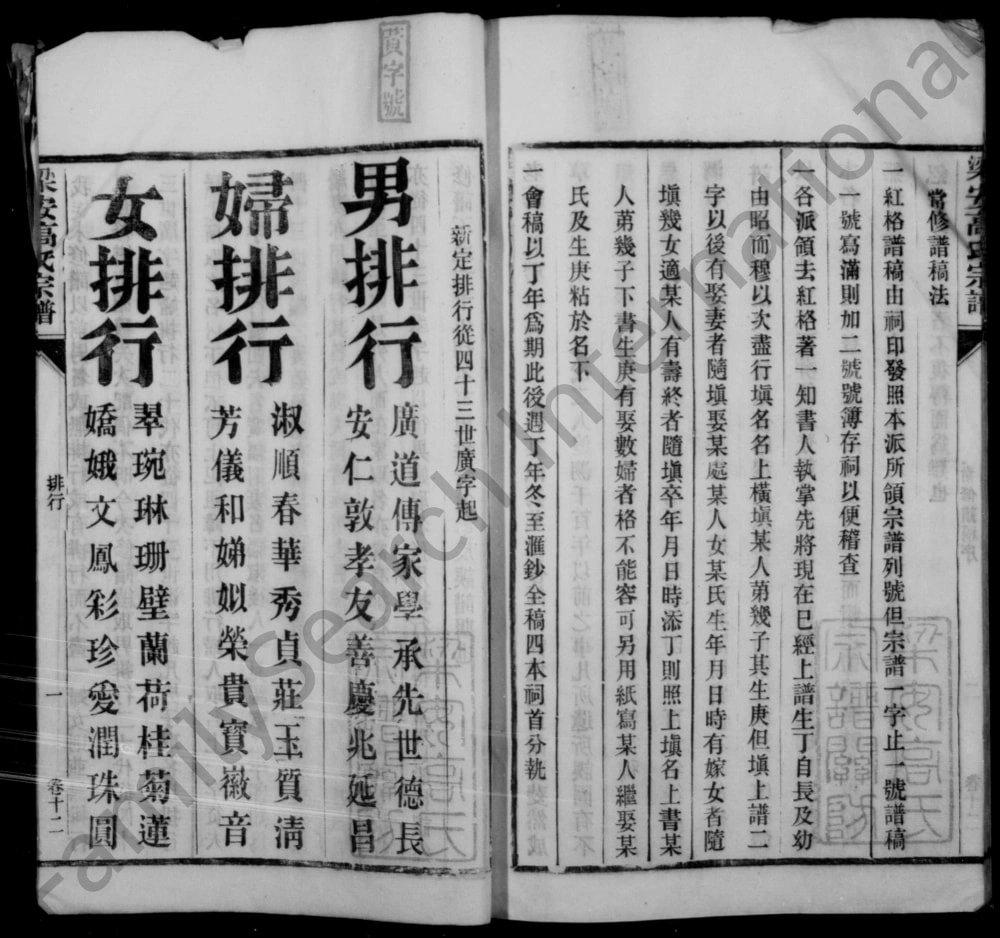 梁安高氏宗譜
常修譜稿法
一紅格譜稿由祠印發照本派所領宗譜列號但宗譜一字止一號譜稿
一號寫滿則加二號號簿存祠以便稽查
一各派領去紅格著一知書人執掌先將現在已經上譜生丁自長及幼
由昭而穆以次盡行塡名名上橫塡某人第幾子其生庚但塡上譜二
字以後有娶妻者隨塡娶某處某人女某氏生年月日時有嫁女者隨
塡幾女適某人有壽終者隨塡卒年月日時添丁則照上塡名上書某
人第幾子下書生庚有娶數婦者格不能容可另用紙寫某人繼娶某
氏及生庚粘於名下
一會稿以丁年爲期此後遇丁年冬至滙鈔全稿四本祠首分執
黃字號
新定排行從四十三世廣字起
男排行
廣道傳家學承先世德長
安仁敦孝友善慶兆延昌
婦排行
淑順春華秀貞莊玉質清
芳儀和娣姒榮貴寶徽音
女排行
翠琬琳珊璧蘭荷桂菊蓮
嬌娥文鳳彩珍愛潤珠圓
梁安高氏宗譜
排行
一
卷十二
FamilySearch International